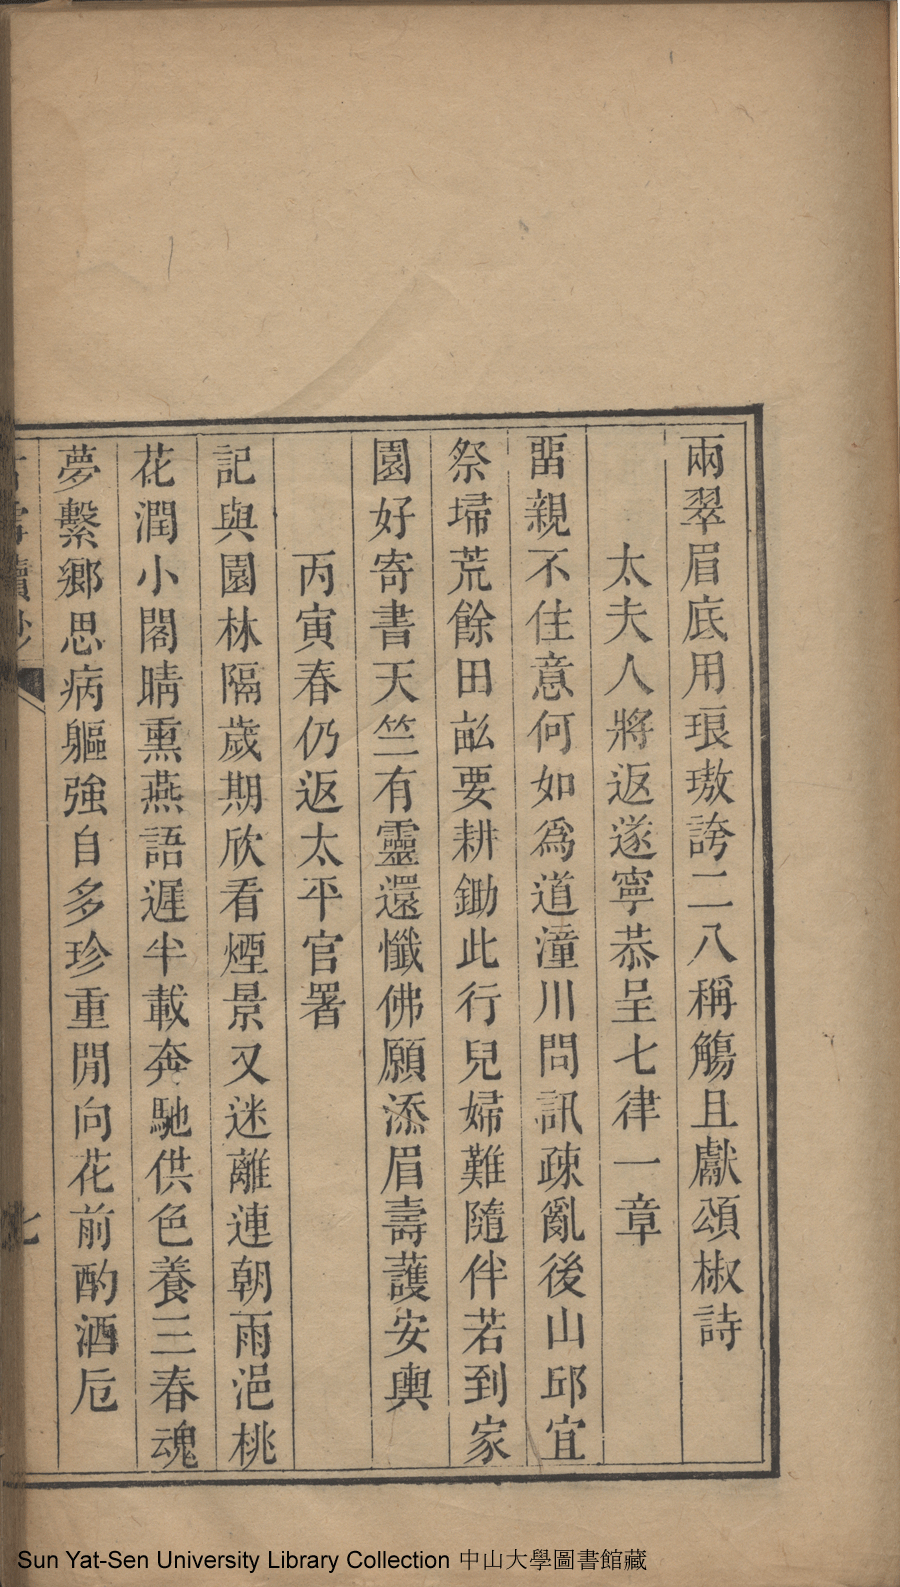 兩翠眉底用琅璈誇二八稱觴且獻頌椒詩
太夫人將返遂寧恭呈七律一章
畱親不住意何如爲道潼川問訊疎亂後山邱宜
祭埽荒餘田畝要耕鋤此行兒婦難隨伴若到家
園好寄書天竺有靈還懺佛願添眉壽護安輿
丙寅春仍返太平官署
記與園林隔歲期欣看煙景又迷離連朝雨浥桃
花潤小閣晴熏燕語遲半載奔馳供色養三春魂
夢繫鄉思病軀強自多珍重閒向花前酌酒卮
七
Sun Yat-Sen University Library Collection 中山大學圖書館藏